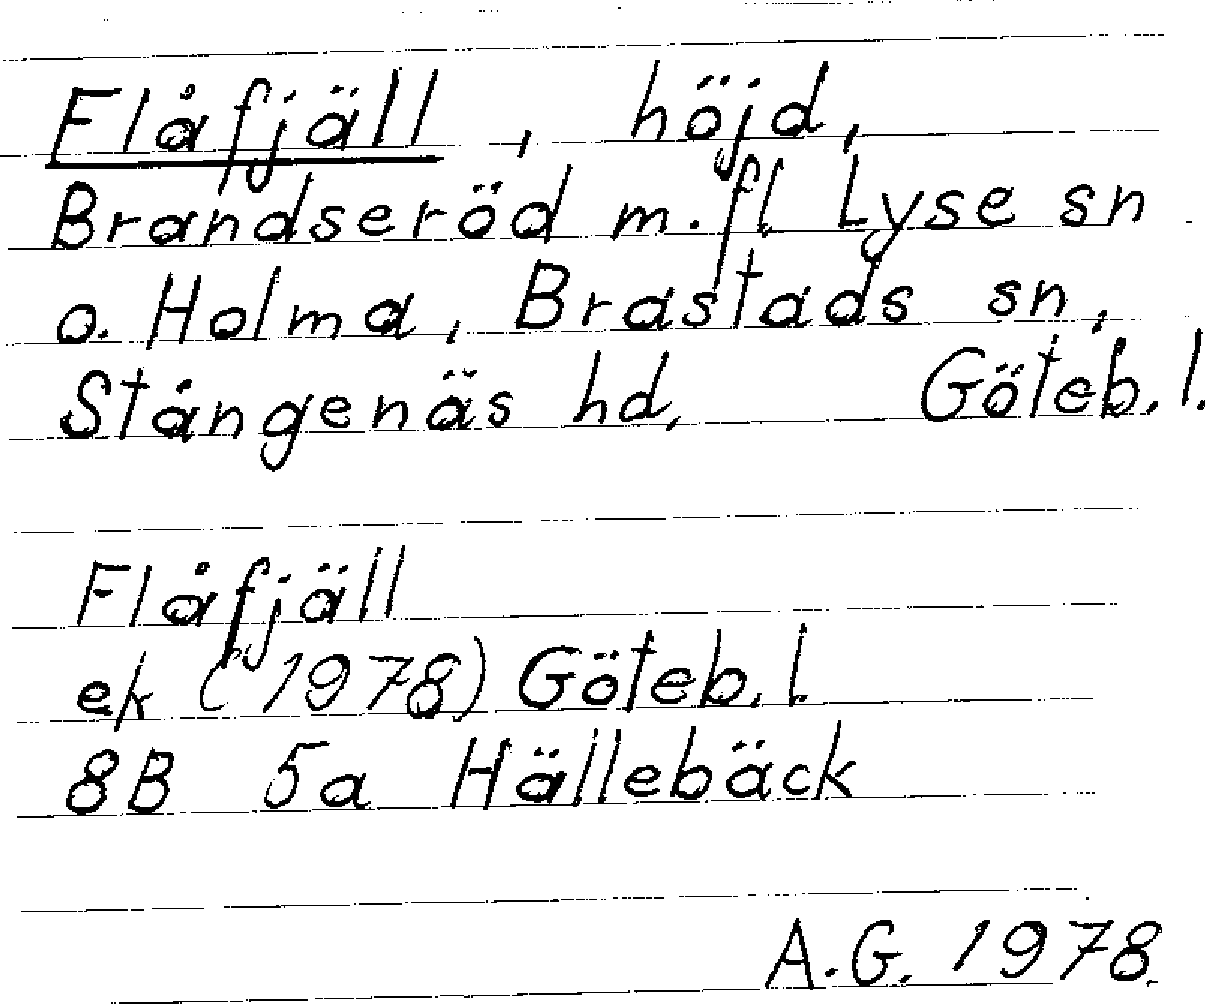 Flåfjäll, höjd,
Brandseröd m.fl Lyse sn
o. Holma, Brastads sn,
Stångenäs hd, Göteb.l.
Flåfjäll
ek (1978) Göteb.l.
8B 5a Hällebäck
A.G. 1978.